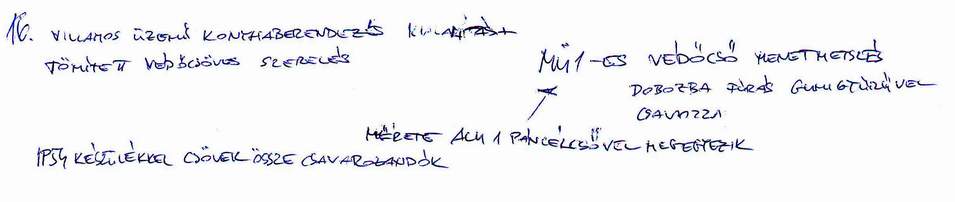 16. VILLAMOS ÜZEMŰ KONYHABERENDEZÉS
TÖMÍTETT VÉDŐCSÖVES SZERELÉS
MÜ1-ES VÉDŐCSŐ MENETMETSZÉS
DOBOZBA FÚRÁS GUMIGYŰRŰVEL
CSAVOZZA
MÉRETE ACM 1 PÁNCÉLCSŐVEL MEGEGYEZIK
IP54 KÉSZÜLÉKKEL CSÖVEK ÖSSZE CSAVAROZANDÓK